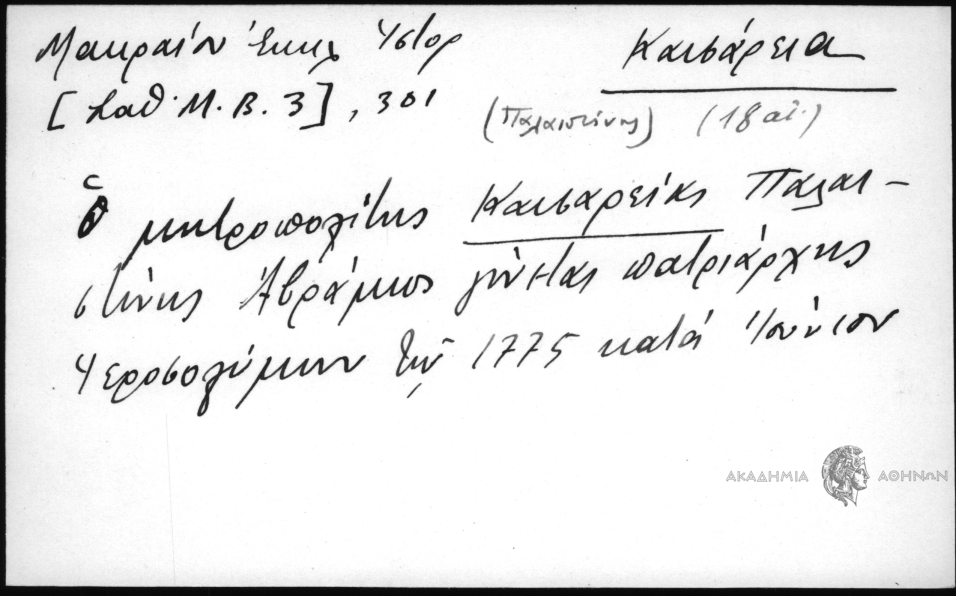 Μακραίου Ἐκκλ Ἱστορ
[Σαθ. Μ. Β. 3], 301
Καισάρεια
(Παλαιστίνης) (18 αἰ.)
Ὁ μητροπολίτης Καισαρείας Παλαι-
στίνης Ἀβράμιος γίνεται πατριάρχης
Ἱεροσολύμων τῷ 1775 κατά Ἰούνιον
ΑΚΑΔΗΜΙΑ ΑΘΗΝΩΝ